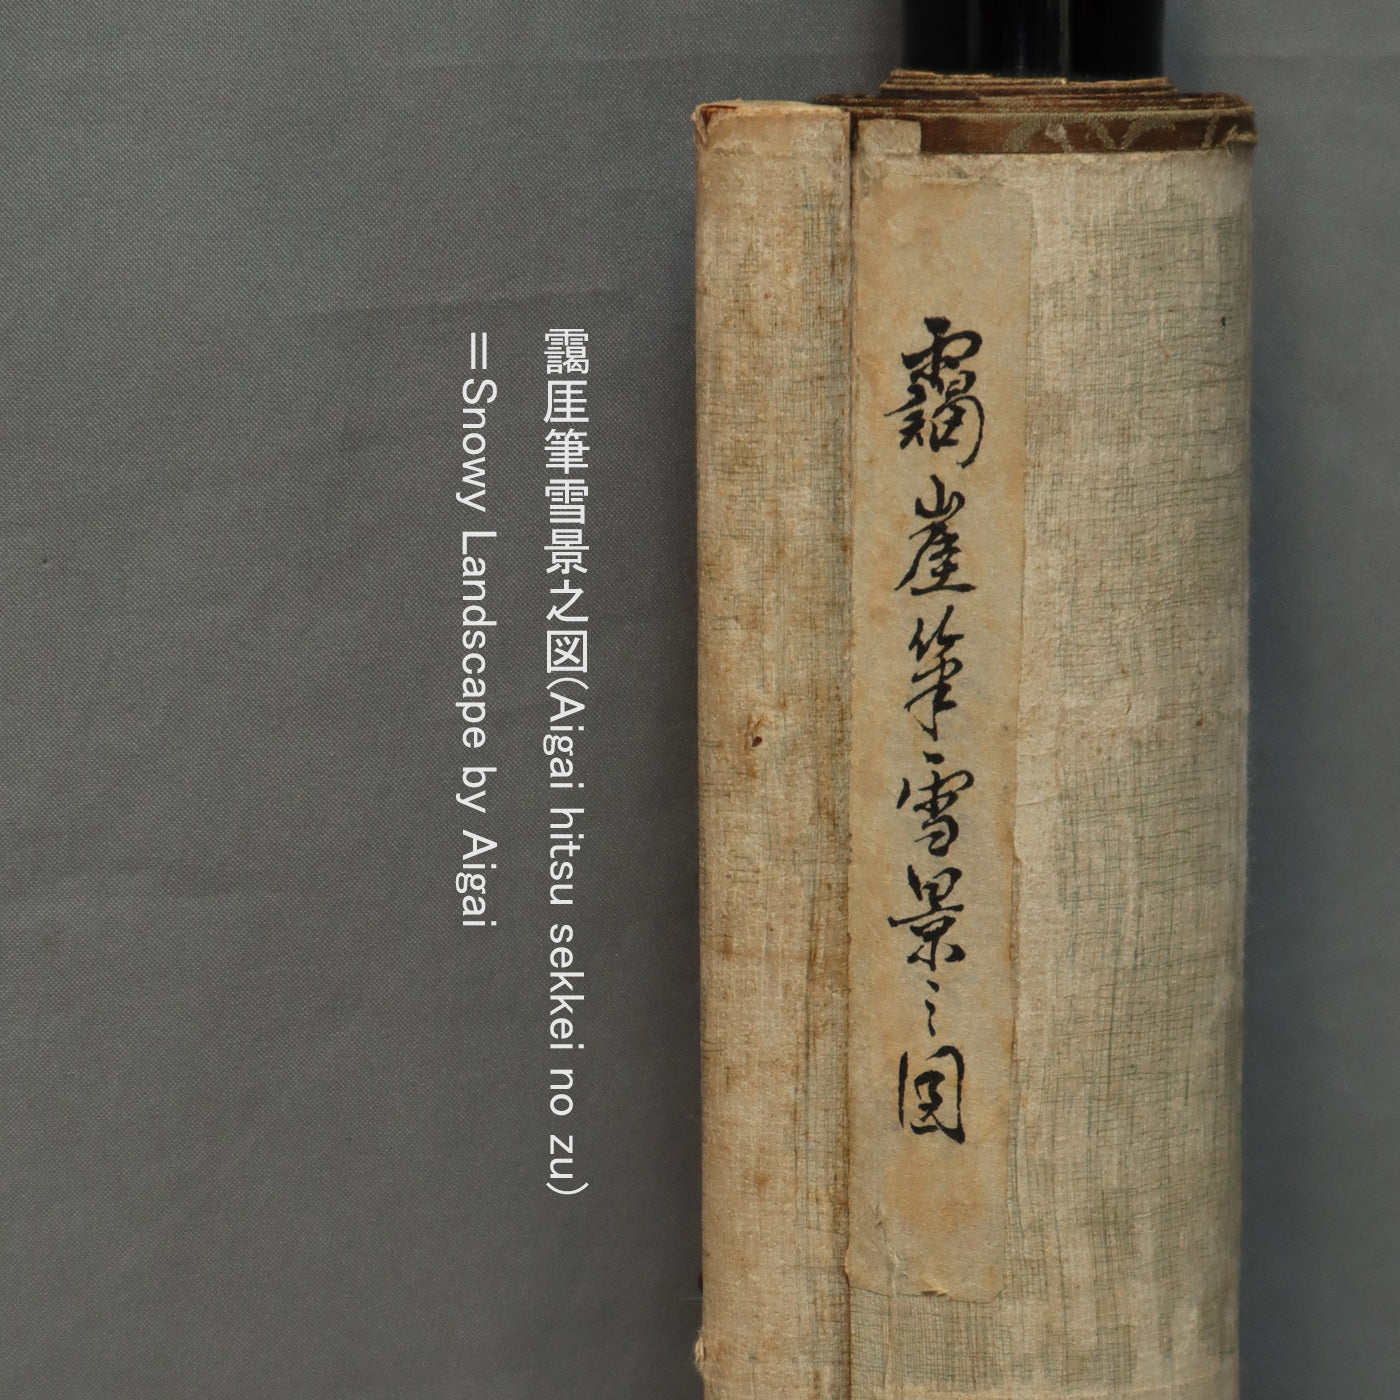 靄崖筆雪景之図
靄厓筆雪景之図(Aigai hitsu sekkei no zu)
=Snowy Landscape by Aigai